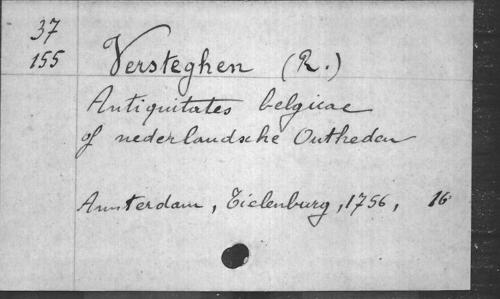 37
155
Versteghen (R.)
Antiquitates belgicae
of nederlandsche Outheden
Amsterdam, Tielenburg, 1756, 16°